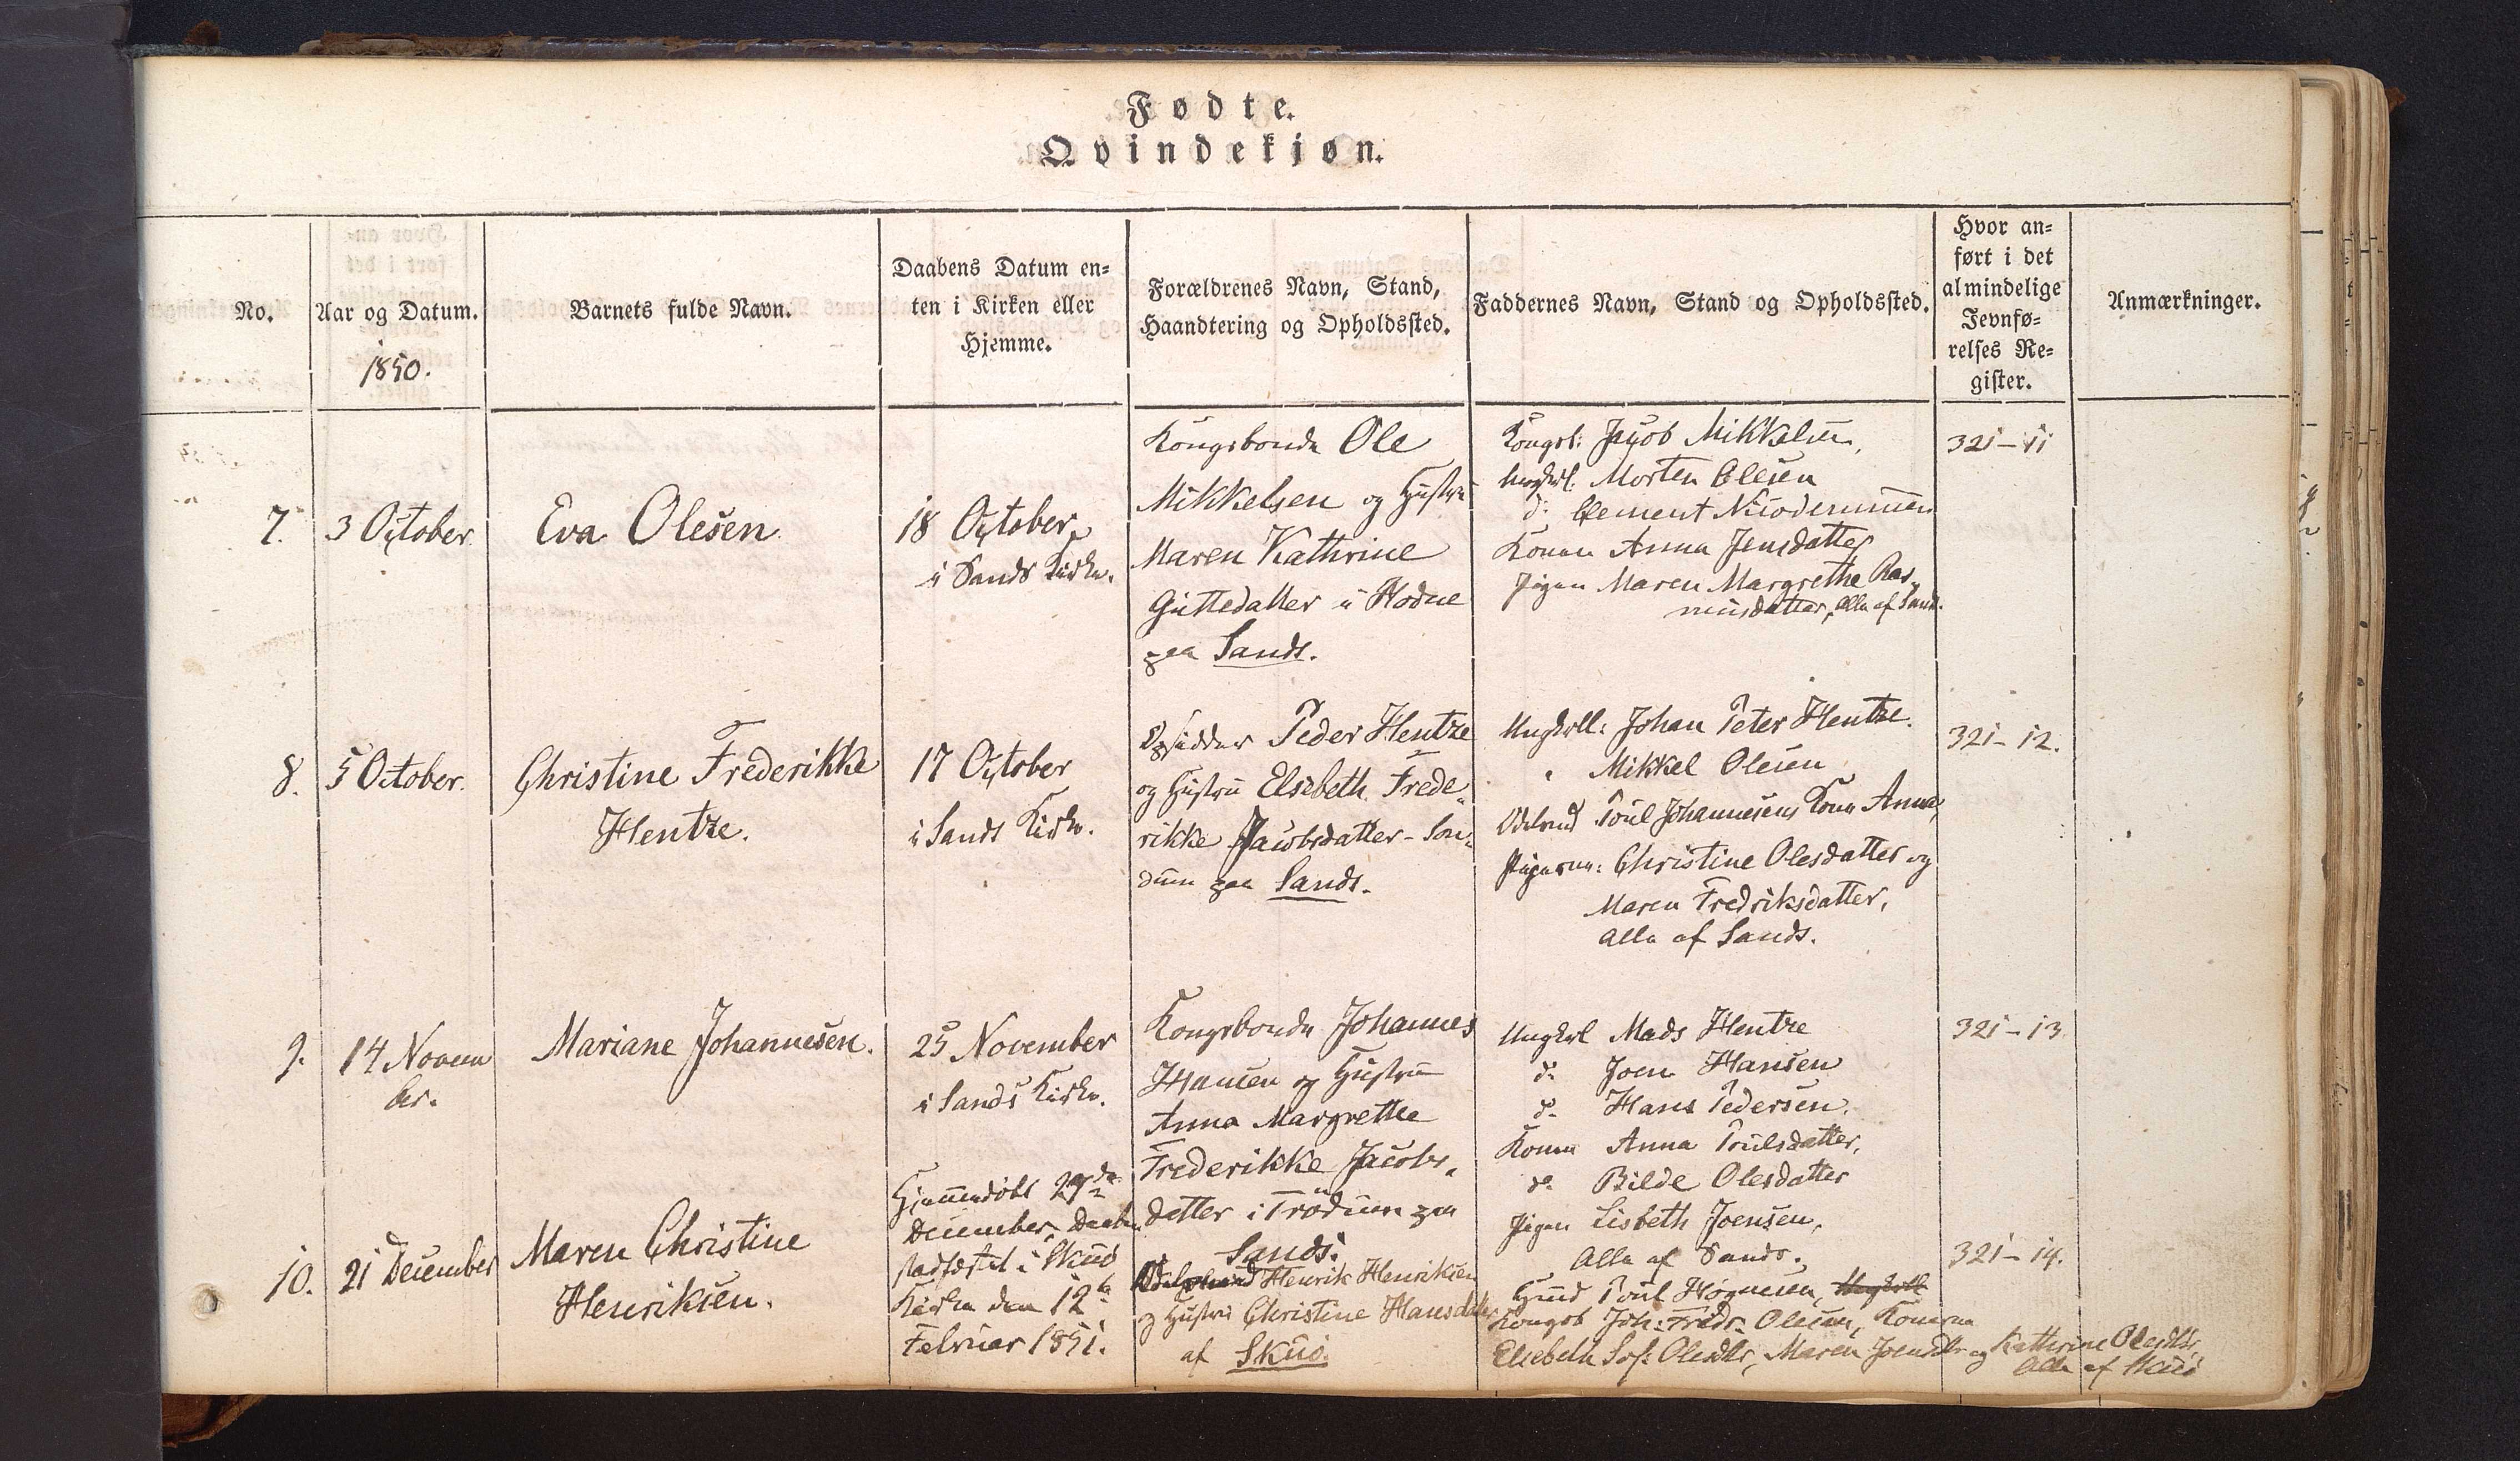 Fødte.
Qvindekjøn.
No.
Aar og Datum.
1850.
Barnets fulde Navn.
Daabens Datum en-
ten i Kirken eller
Hjemme.
Forældrenes Navn, Stand,
Haandtering og Opholdssted.
Faddernes Navn, Stand og Opholdssted.
Hvor an-
ført i det
almindelige
Jevnfø-
relses Re-
gister.
Anmærkninger.
7.
3 October
Eva Olesen
18 October
i Sands Kirke.
Kongsbonde Ole
Mikkelsen og Hustru
Maren Kathrine
Guttedatter i
paa Sands.
Kongsb: Jacob Mikkelsen,
Ungkrl: Morten Olesen
d: Clement
Konen Anna Jensdatter
Pigen Maren Margrethe Ras-
musdatter, Alle af Sand.
321-11
8.
5 October.
Christine Frederikke
Hentze.
17 October
i Sands Kirke.
Opsidder Peder Hentze
og Hustru Elsebeth Frede-
rikke Jacobsdatter -
paa Sands.
Ungkrll: Johan Peter Hentze.
" Mikkel Olesen
Poul Johannesens Kone Anna,
Pigerne: Christine Olesdatter og
Maren Fredriksdatter,
Alle af Sands.
321-12.
9.
14 Novem
ber.
Mariane Johannesen.
25 November
i Sands Kirke.
Kongsbonde Johannes
Hansen og Hustru
Anna Margrethe
Frederikke Jacobs-
datter i Trödum paa
Sands.
Ungkrl Mads Hentze
d: Joen Hansen
d: Hans Pedersen.
Konen Anna Poulsdatter,
do Bilde Olesdatter
Pigen Lisbeth Joensen,
Alle af Sands.
321-13.
10.
21 December
Maren Christine
Henriksen.
Hjemmedöbt 29de
December, Daaben
stadfæstet i Skuö
Kirke den 12te
Februar 1851.
Henrik Henriksen
og Hustru Christine Hansdatter
af Skuö.
Poul Högnesen,
Kongsb Joh: Fredr: Olesen, Konerne
Elsebeth Sof: Olesdtr, Maren Joensdtr og Kathrine Olesdtr,
Alle af Skuö
321-14.